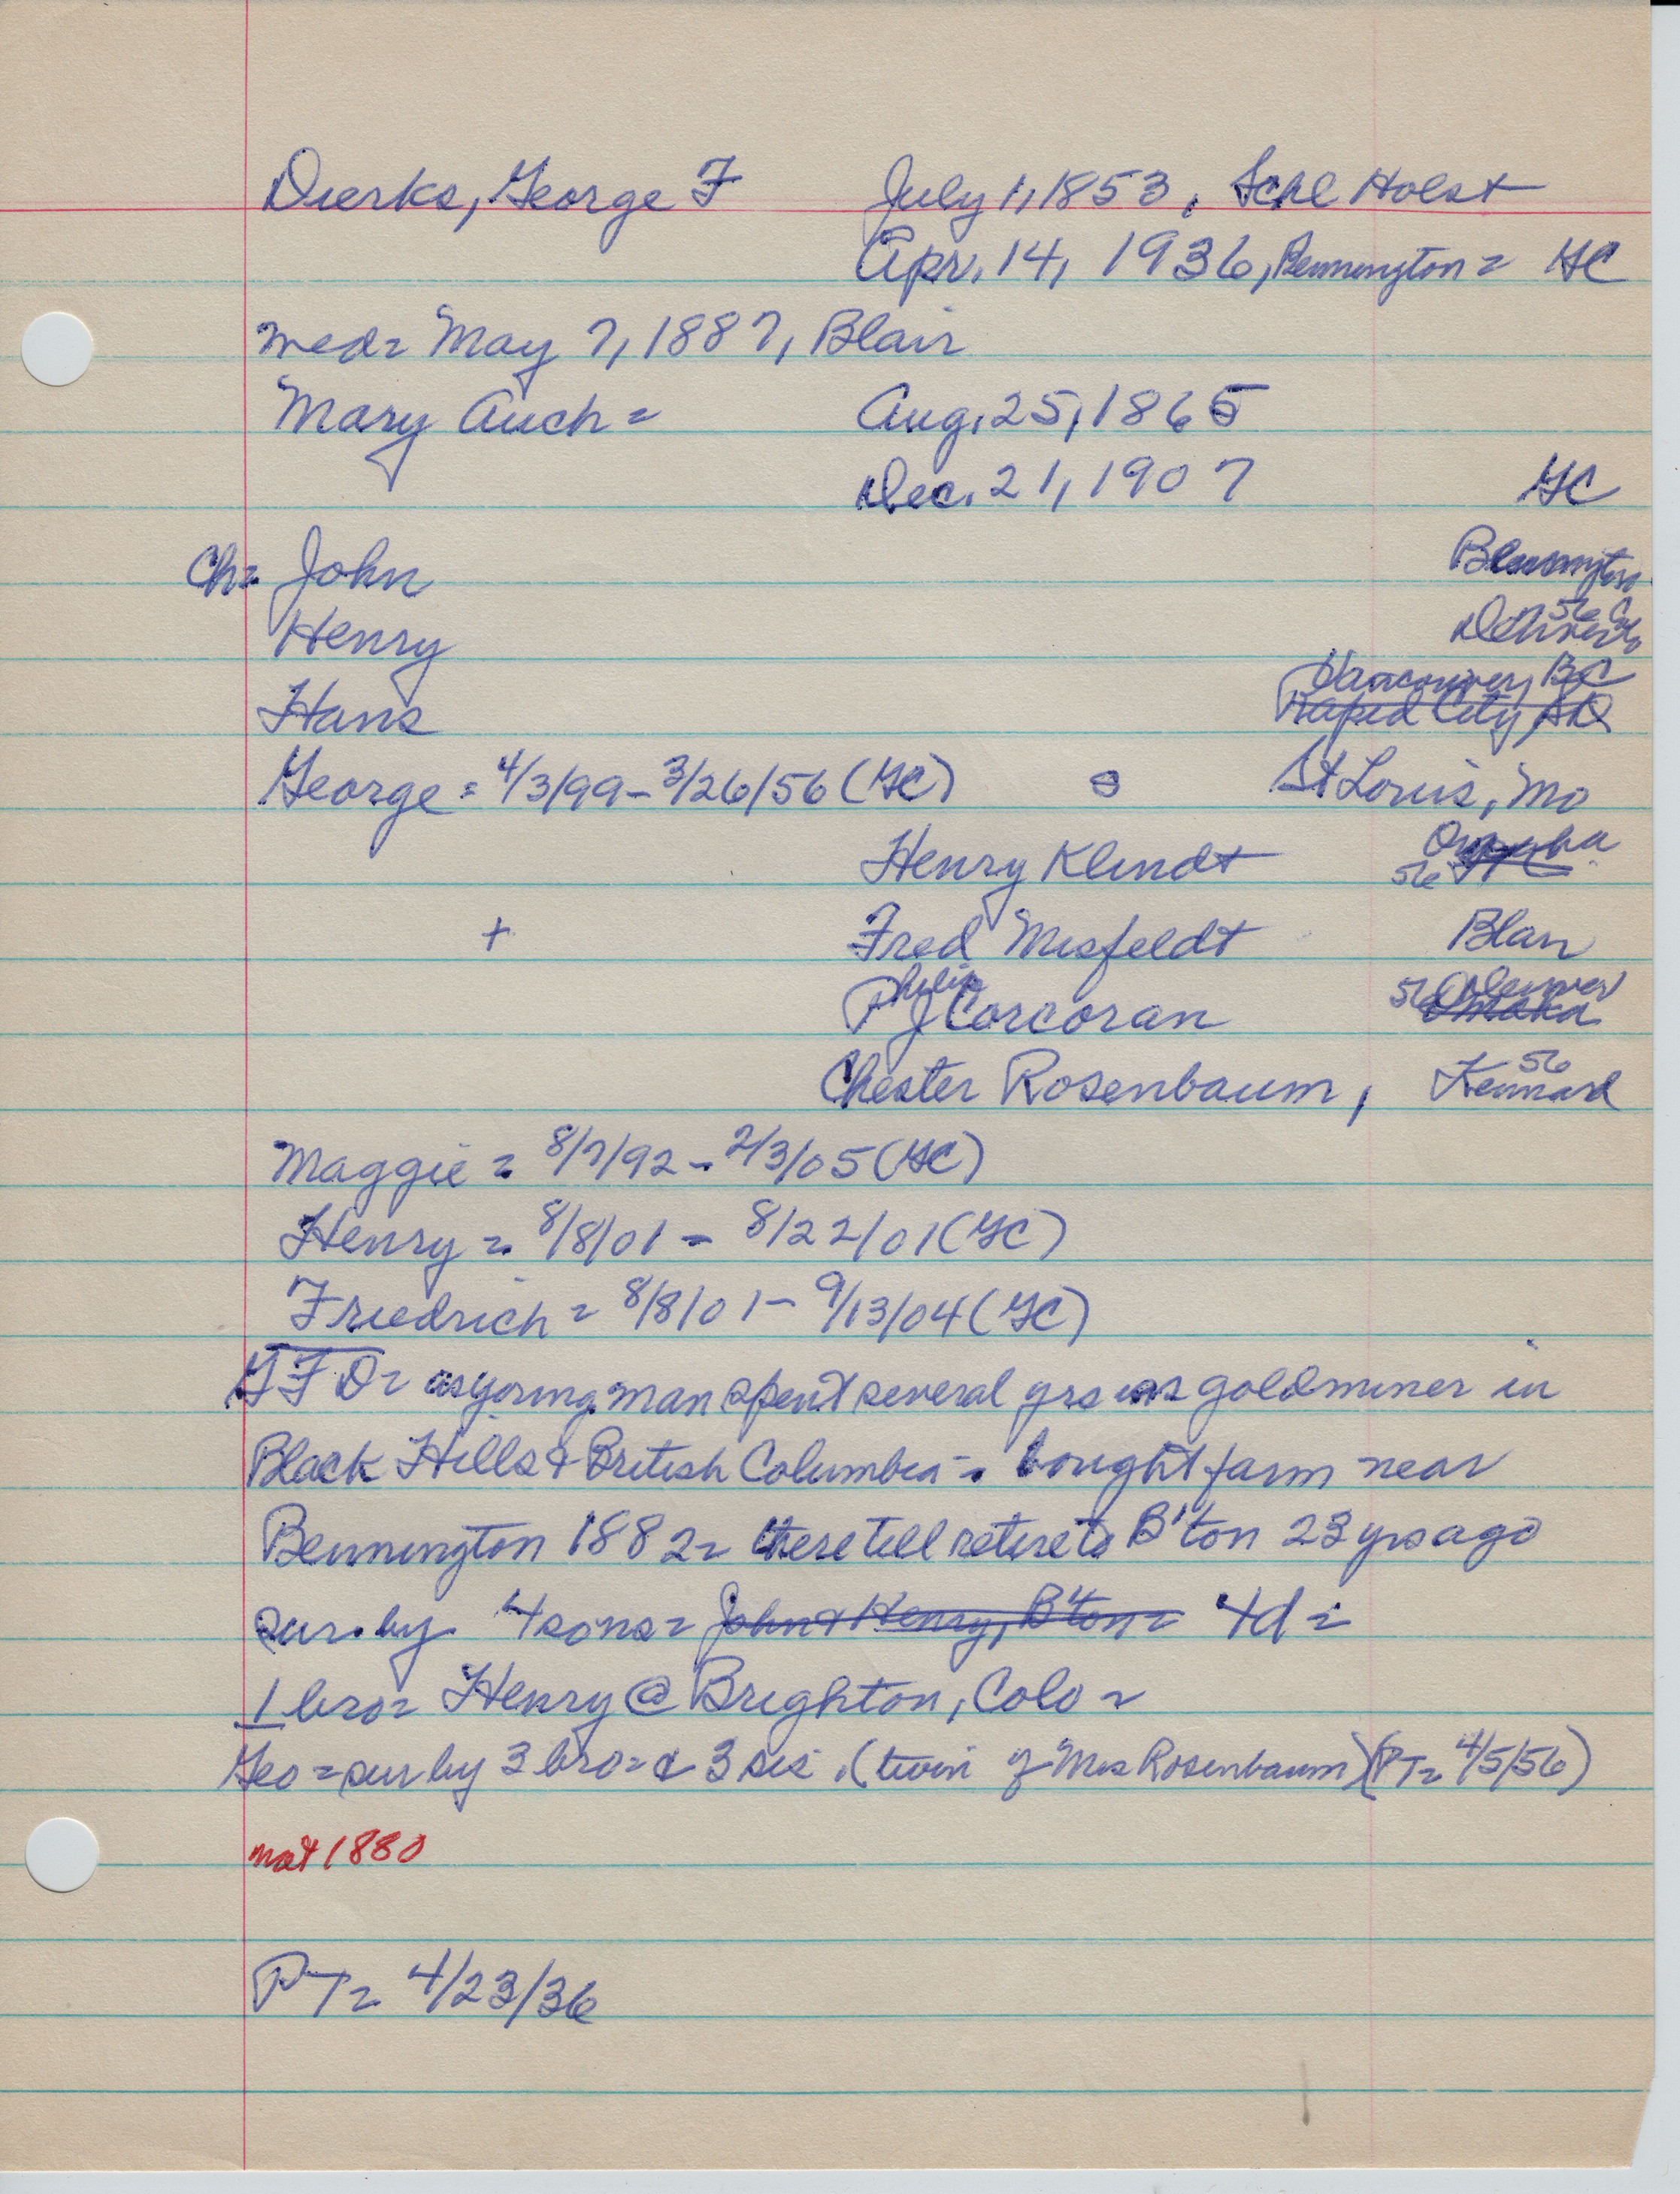 Dierks, George F July 1, 1853, Schl Holst
Apr. 14, 1936, Bennington = GC
wed= May 7, 1887, Blair
Mary Auch = Aug. 25, 1865
Dec. 21, 1907 GC
Ch= John Bennington
Henry 56 Denver Co
Hans Vancouver, BC
Rapid City SD
George = 4/3/99 - 3/26/56 (GC) St Louis, Mo
Henry Klindt 56 Omaha
+ Fred Misfeldt Blair
Philip J Corcoran 56 Denver
Omaha
Chester Rosenbaum, 56 Kennard
Maggie = 8/7/92 - 2/3/05 (GC)
Henry = 8/8/01 - 8/22/01 (GC)
Friedrich = 8/8/01 - 9/13/04 (GC)
GFD= as young man spent several yrs as goldminer in
Black Hills & British Columbia -. bought farm near
Bennington 1882= there till retire to B'ton 23 yrs ago
sur. by 4 sons = John & Henry, B'ton = 4d =
1 bro= Henry @ Brighton, Colo =
Geo = sur by 3 bro= & 3 sis. (twin of Mrs Rosenbaum) (PT= 4/5/56)
nat 1880
PT= 4/23/36